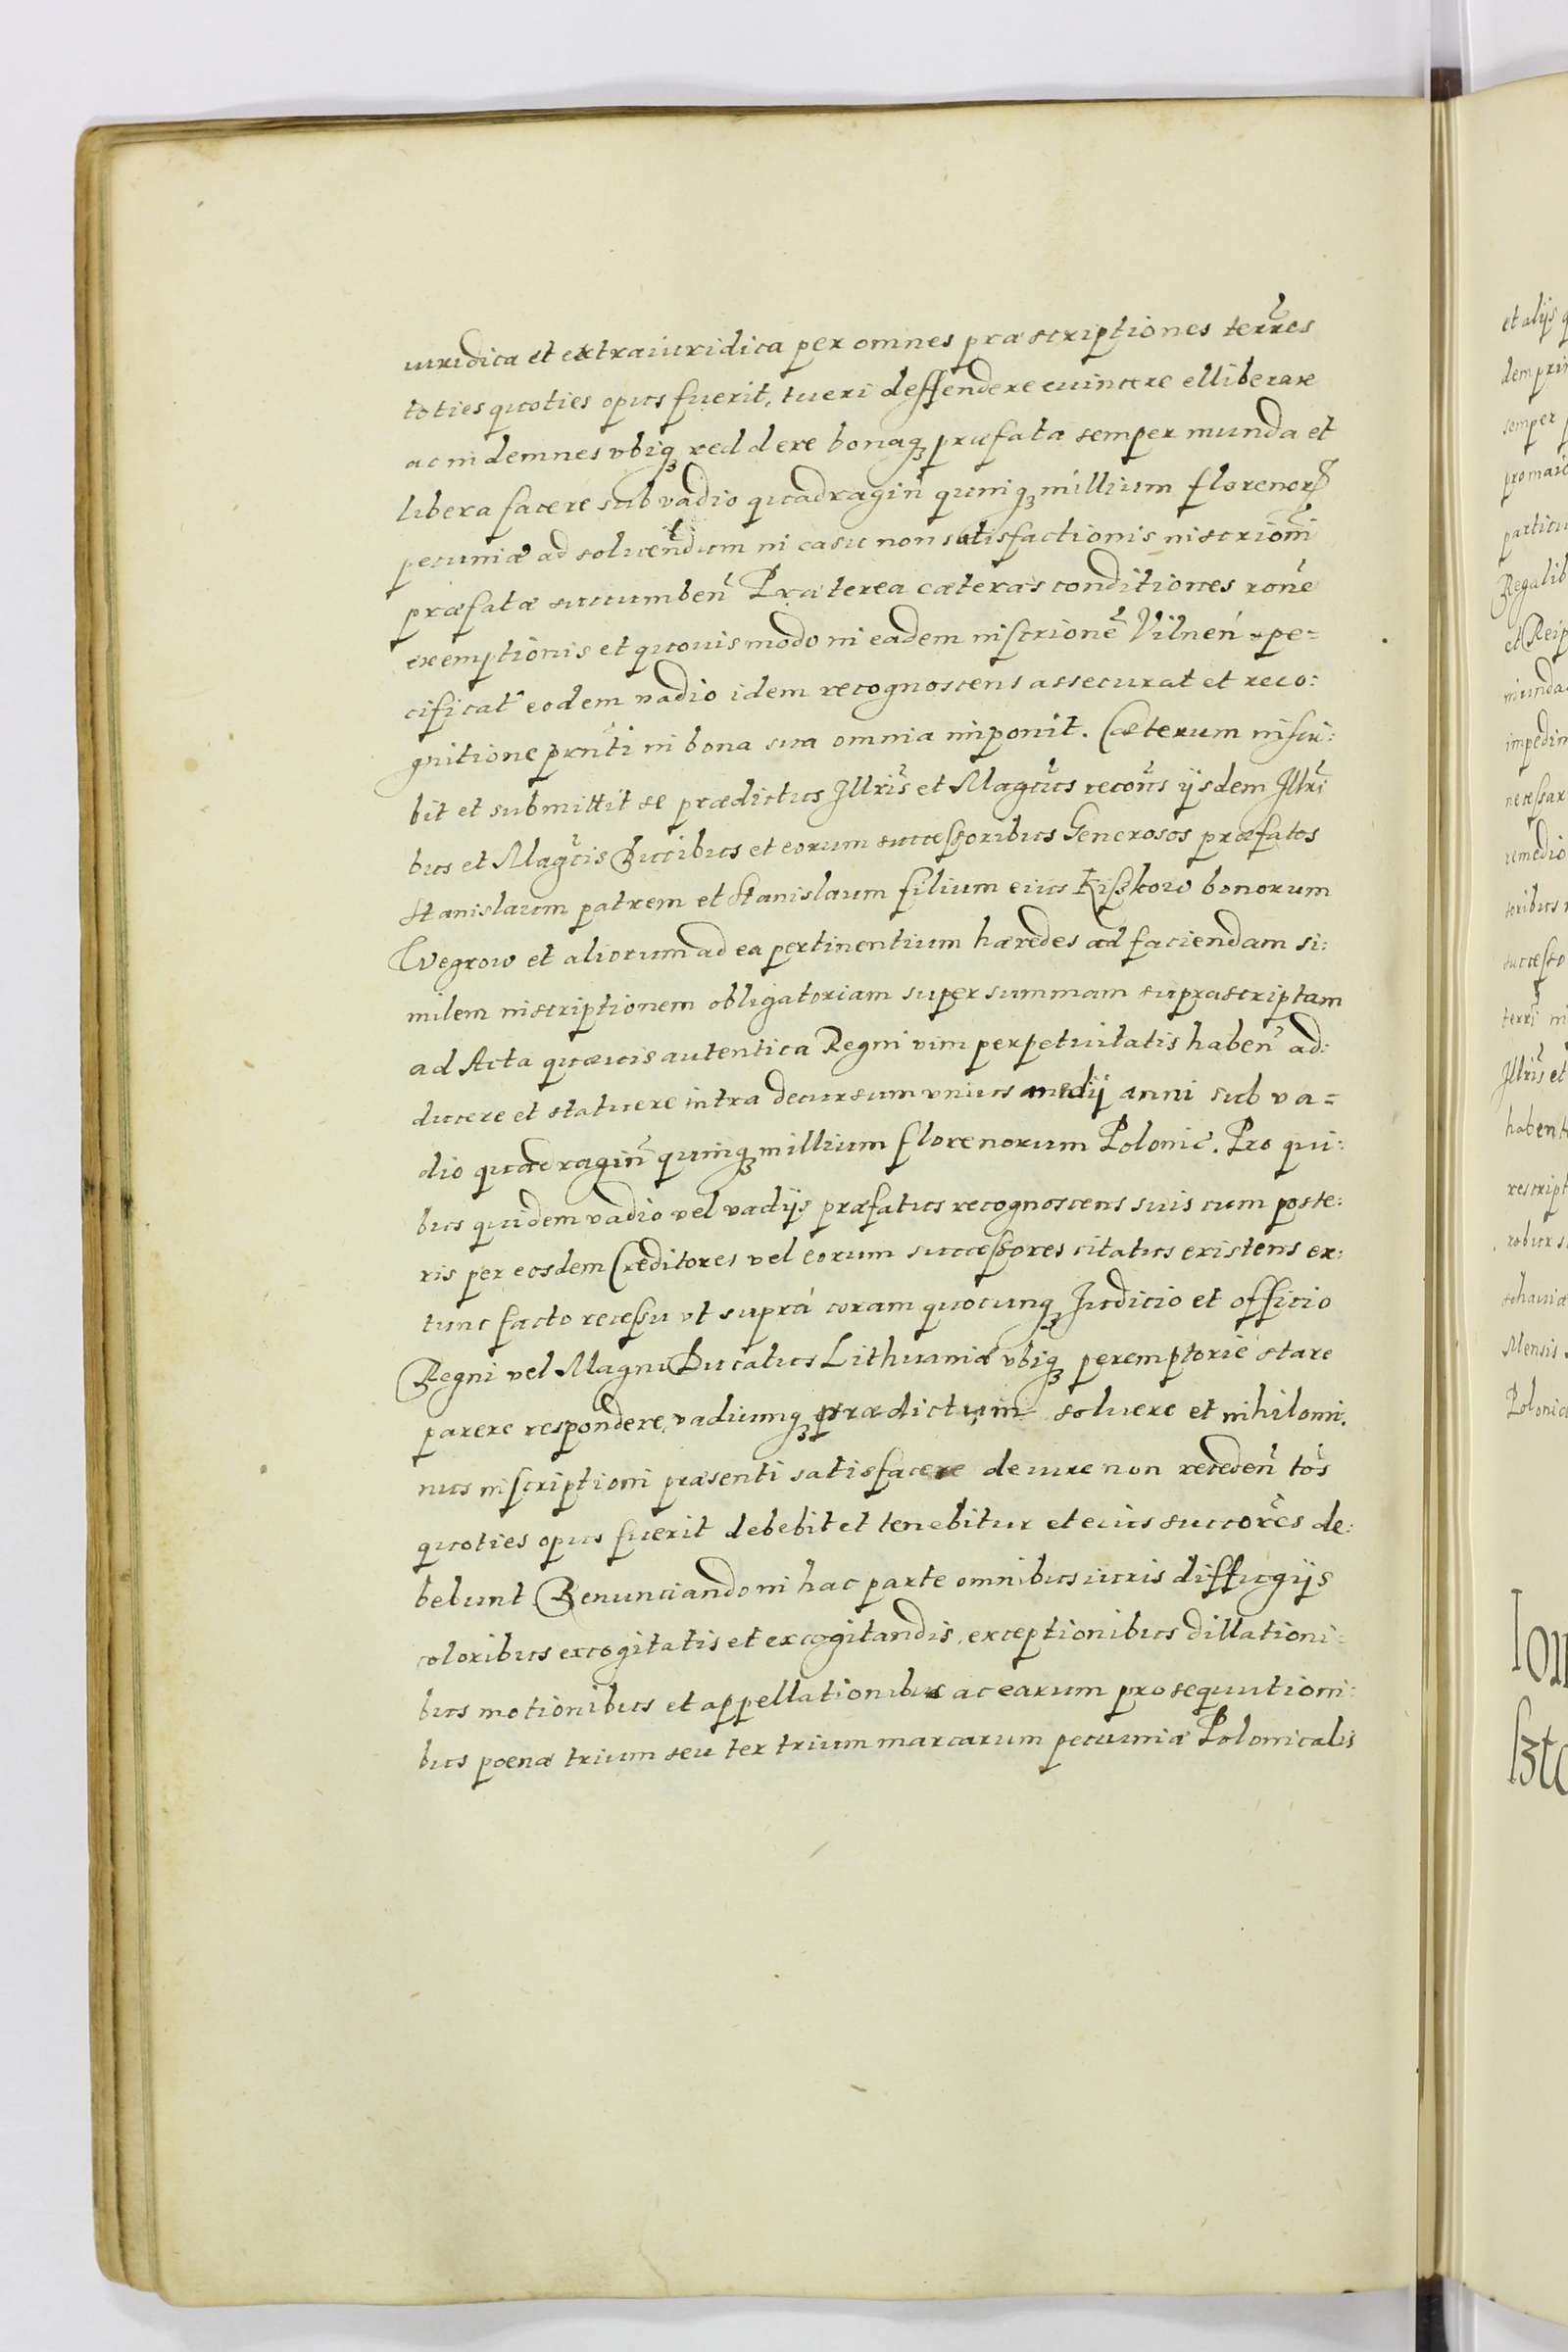 iuridica et extraiuridica per omnes præscriptiones terr̃es
toties quoties opus fuerit, tueri deffendere euincere elliberare
ac indemnes vbiq₃ reddere bonaq₃ præfata semper munda et
libera facere sub vadio quadragin̄ quinq₃ millium florenorꝝ
pecuniæ ad soluendum in casu non satisfactionis inscrioñi
præfatæ succumbeñ Præterea cæteras conditiones roñe
exemptionis et quouis modo in eadem inscrioñe Vilneń spe=
cificat̃ eodem vadio idem recognoscens assecurat et reco:
gnitione prñti in bona sua omnia imponit. Cæterum inscri:
bit et submittit se prædictus Illr̃is et Mag̃cus recoñs ijsdem Illr̃i
bus et Mag̃cis Ducibus et eorum successoribus Generosos præfatos
Stanislaum patrem et Stanislaum filium eius Kißkow bonorum
Wegrow et aliorum ad ea pertinentium hæredes ad faciendam si:
milem inscriptionem obligatoriam super summam suprascriptam
ad Acta quæuis autentica Regni vim perpetuitatis habeñ ad:
ducere et statuere intra decursum vnius medij anni sub va=
dio quadragiñ quinq₃ millium florenorum Polonic̃. Pro qui:
bus quidem vadio vel vadijs præfatus recognoscens suis cum poste:
ris per eosdem Creditores vel eorum successores citatus existens ex:
tunc facto recessu vt supra coram quocunq₃ Judicio et officio
Regni vel Magni Ducatus Lithuaniæ vbiq₃ peremptorie stare
parere respondere, vadiumq₃ prædictum soluere et nihilomi.
nus inscriptioni præsenti satisfacere de iure non recedeñ tõs
quoties opus fuerit debebit et tenebitur et eius succor̃es de:
bebunt Renunciando in hac parte omnibus iuris diffugijs
coloribus excogitatis et excogitandis, exceptionibus dillationi=
bus motionibus et appellationibus ac earum prosequutioni:
bus poenæ trium seu ter trium marcarum pecuniæ Polonicalis
et alijs
semper
Regalib
successo
Illr̃is et
habent
Mensis